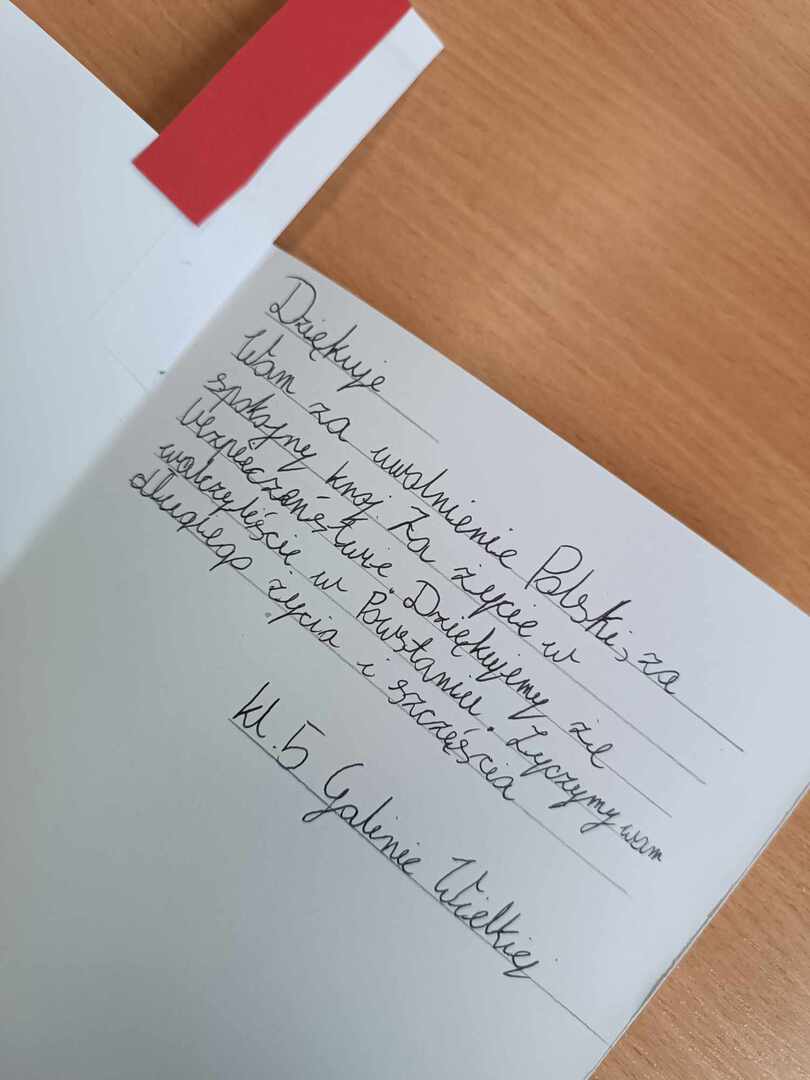 Dziękuje
Wam za uwolnienie Polski, za
spokojny kraj. Za życie w
bezpieczeństwie. Dziękujemy że
walczyliście w Powstaniu. Życzymy wam
długiego życia i szczęścia
kl. 5 Galinie Wielkiej